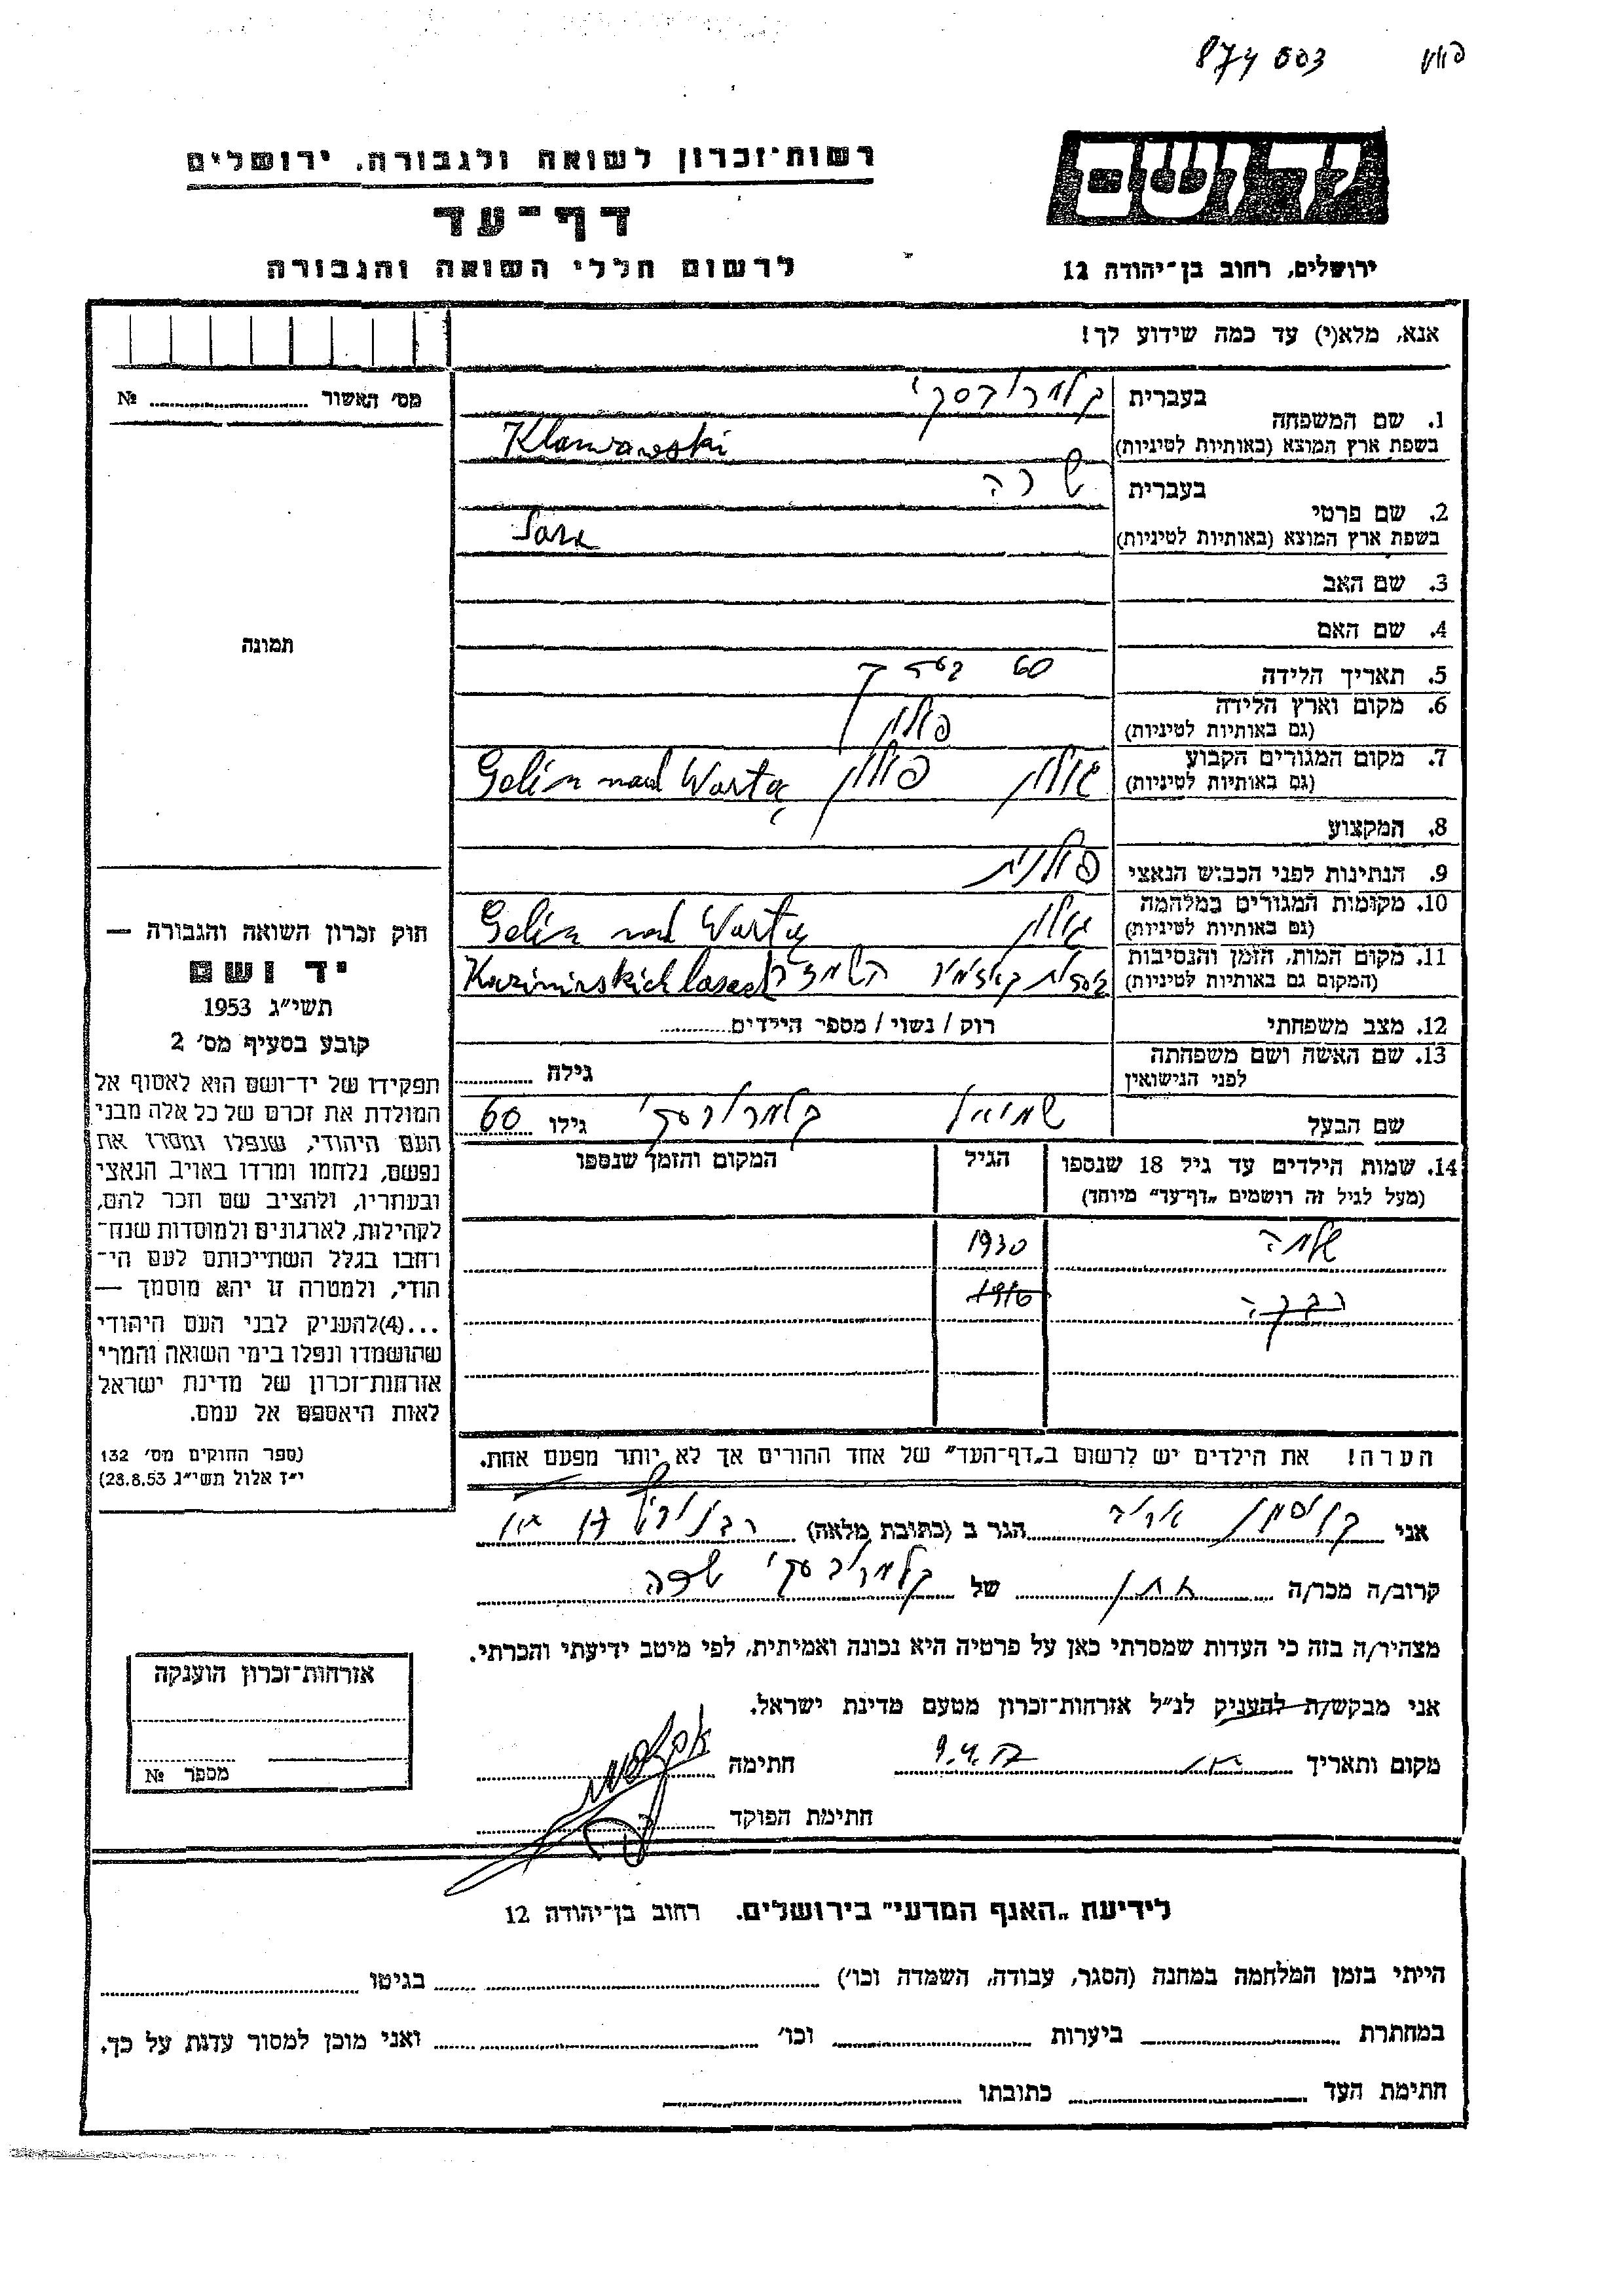 874 003
רשות־זכרון לשואה ולגבורה, ירושלים
דף־עד
לרשום חללי השואה והגבורה
יד ושם
ירושלים, רחוב בן־יהודה 12
אנא, מלא(י) עד כמה שידוע לך!
מס׳ האשור № 
1. שם המשפחה
בעברית קלמרובסקי
בשפת ארץ המוצא (באותיות לטיניות) Klamrowski
2. שם פרטי
בעברית שרה
בשפת ארץ המוצא (באותיות לטיניות) Sara
3. שם האב
4. שם האם
תמונה
5. תאריך הלידה 60
6. מקום וארץ הלידה
(גם באותיות לטיניות) פולין
7. מקום המגורים הקבוע
(גם באותיות לטיניות) גולין פולין Golin nad Wartą
8. המקצוע
9. הנתינות לפני הכבוש הנאצי פולנית
10. מקומות המגורים במלחמה
(גם באותיות לטיניות) גולין Golin nad Wartą
11. מקום המות, הזמן והנסיבות
(המקום גם באותיות לטיניות) Kazimirskich lasach
12. מצב משפחתי רוק / נשוי / מספר הילדים
13. שם האשה ושם משפחתה
לפני הנישואין גילה
שם הבעל שמואל קלמרובסקי גילו 60
14. שמות הילדים עד גיל 18 שנספו
(מעל לגיל זה רושמים „דף־עד״ מיוחד)
הגיל
המקום והזמן שנספו
שלמה 1930
רבקה 1916
הערה! את הילדים יש לרשום ב„דף־העד״ של אחד ההורים אך לא יותר מפעם אחת.
חוק זכרון השואה והגבורה —
יד ושם
תשי״ג 1953
קובע בסעיף מס׳ 2
תפקידו של יד־ושם הוא לאסוף אל
המולדת את זכרם של כל אלה מבני
העם היהודי, שנפלו ומסרו את
נפשם, נלחמו ומרדו באויב הנאצי
ובעוזריו, ולהציב שם וזכר להם,
לקהילות, לארגונים ולמוסדות שנח־
רחבו בגלל השתייכותם לעם הי־
הודי, ולמטרה זו יהא מוסמך —
...(4)להעניק לבני העם היהודי
שהושמדו ונפלו בימי השואה והמרי
אזרחות־זכרון של מדינת ישראל
לאות היאספם אל עמם.
(ספר החוקים מס׳ 132
י״ז אלול תשי״ג 28.8.53)
אני הגר ב (כתובת מלאה)
קרוב/ה מכר/ה חתן של קלמרובסקי שרה
מצהיר/ה בזה כי העדות שמסרתי כאן על פרטיה היא נכונה ואמיתית, לפי מיטב ידיעתי והכרתי.
אני מבקש/ת להעניק לנ״ל אזרחות־זכרון מטעם מדינת ישראל.
מקום ותאריך חתימה
חתימת הפוקד
אזרחות־זכרון הוענקה
מספר №
לידיעת „האגף המדעי״ בירושלים. רחוב בן־יהודה 12
הייתי בזמן המלחמה במחנה (הסגר, עבודה, השמדה וכו׳) בגיטו
במחתרת ביערות וכו׳ ואני מוכן למסור עדות על כך.
חתימת העד כתובתו